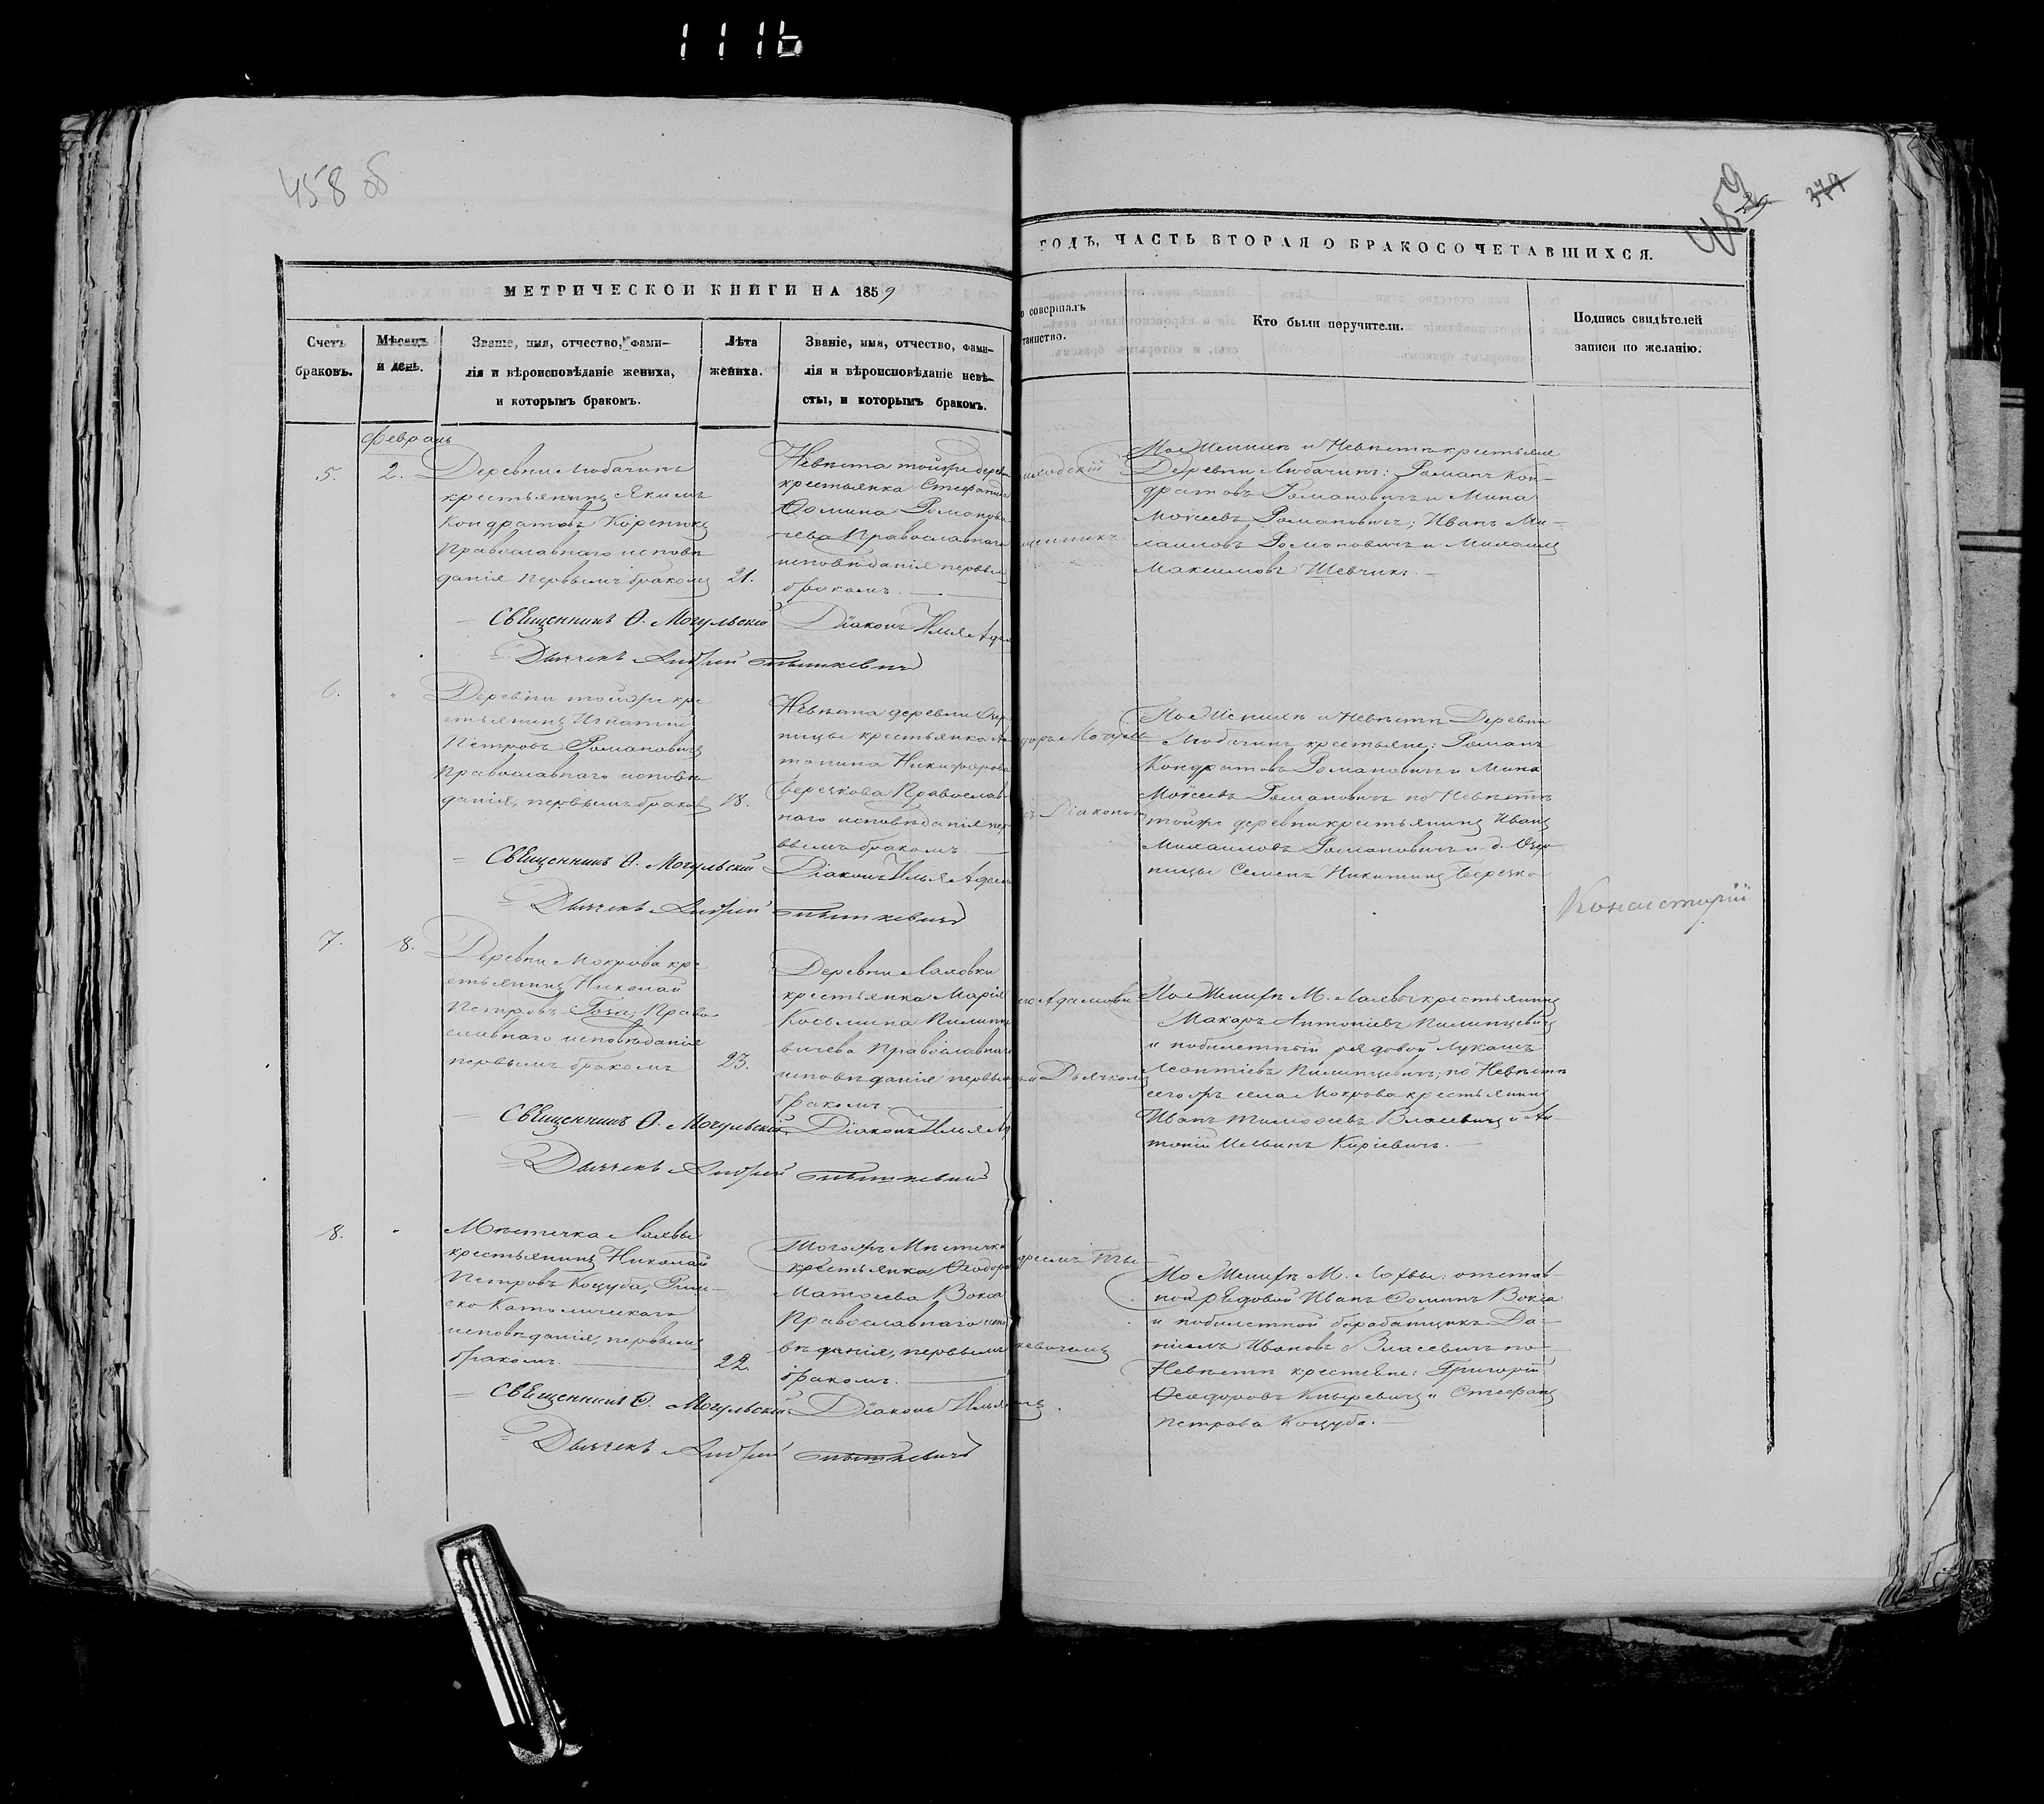 111b
458 об
459
29
379
МЕТРИЧЕСКОЙ КНИГИ НА 1859
ГОДЪ, ЧАСТЬ ВТОРАЯ О БРАКОСОЧЕТАВШИХСЯ.
Счетъ
браковъ.
Мѣсяцъ
и день.
Званіе, имя, отчество, фами-
лія и вѣроисповѣданіе жениха,
и которымъ бракомъ.
Лѣта
жениха.
Званіе, имя, отчество, фами-
лія и вѣроисповѣданіе невѣ-
сты, и которымъ бракомъ.
о совершалъ
таинство.
Кто были поручители.
Подпись свидѣтелей
записи по желанію.
Февраль
5.
2.
Деревни Любачинъ
крестьянинъ Якимъ
Кондратовъ Коренюкъ
Православнаго исповѣ
данія первымъ бракомъ
21.
Невѣста тойже дерев
крестьянка Стефанида
Ѳомина Романови
чева Православнаго
исповѣданія первым
бракомъ.
щенникъ
По Женихѣ и Невѣстѣ крестьяне
Деревни Любачинъ: Романъ Кон-
дратовъ Романовичъ и Мина
Моисеевъ Романовичъ; Иванъ Ми-
хаиловъ Романовичъ и Михаилъ
Максимовъ Шевчикъ.
Священникъ Ѳ. Могульскій
Діаконъ Илья Ада
Дьячекъ Андрей
6.
"
Деревни тойже кре
стьянинъ Игнатій
Петровъ Романовичъ
Православнаго исповѣ
данія, первымъ браком
18.
Невѣста деревни
ницы крестьянка Ан
тонина Никифорова
Берецкова Православ
наго исповѣданія пер
вымъ бракомъ.
доръ Могуль
съ Діакономъ
По Женихѣ и Невѣстѣ Деревни
Любачинъ крестьяне: Романъ
Кондратовъ Романовичъ и Мина
Моисеевъ Романовичъ по Невѣстѣ
тойже деревни крестьянинъ Иванъ
Михаиловъ Романовичъ и д.
ницы Семенъ Никитинъ Берецко
Священникъ Ѳ. Могульскій
Діаконъ Илья Адам
Дьячекъ Андрей
Консисторій
7.
8.
Деревни Мокрова кре
стьянинъ Николай
Петровъ Право
славнаго исповѣданія
первымъ бракомъ
23.
Деревни Лаховки
крестьянка Марія
Косьмина Пилипце
вичева Православнаг
исповѣданія первым
бракомъ
ею Адамови
и Дьячкомъ
По Женихѣ М. Лахвы крестьянинъ
Макаръ Антоніевъ Пилипцевичъ
и побилетный рядовой Лукашъ
Леонтіевъ Пилипцевичъ; по Невѣстѣ
сегожъ села Мокрова крестьянинъ
Иванъ Тимоѳеевъ Власевичъ и Ан-
тоній Ильинъ Киріевичъ.
Священникъ Ѳ. Могульскій
Діаконъ Илья Ад
Дьячекъ Андрей
8.
"
Мѣстечка Лахвы
крестьянинъ Николай
Петровъ Коцуба, Рим-
ско Католическаго
исповѣданія, первымъ
бракомъ.
22.
Тогожъ Мѣстечка
крестьянка Ѳеодора
Матѳеева Вокса
Православнаго испо
вѣданія, первымъ
бракомъ.
дреемъ
кевичемъ
По Женихѣ М. Лахвы: отстав-
ной рядовой Иванъ Ѳоминъ Вокса
и побилетной барабанщикъ Да-
ніилъ Ивановъ Власевичъ по
Невѣстѣ крестьяне: Григорій
Ѳеодоровъ и Стефанъ
Петровъ Коцуба.
Священникъ Ѳ. Могульскій
Діаконъ Илья
Дьячекъ Андрей